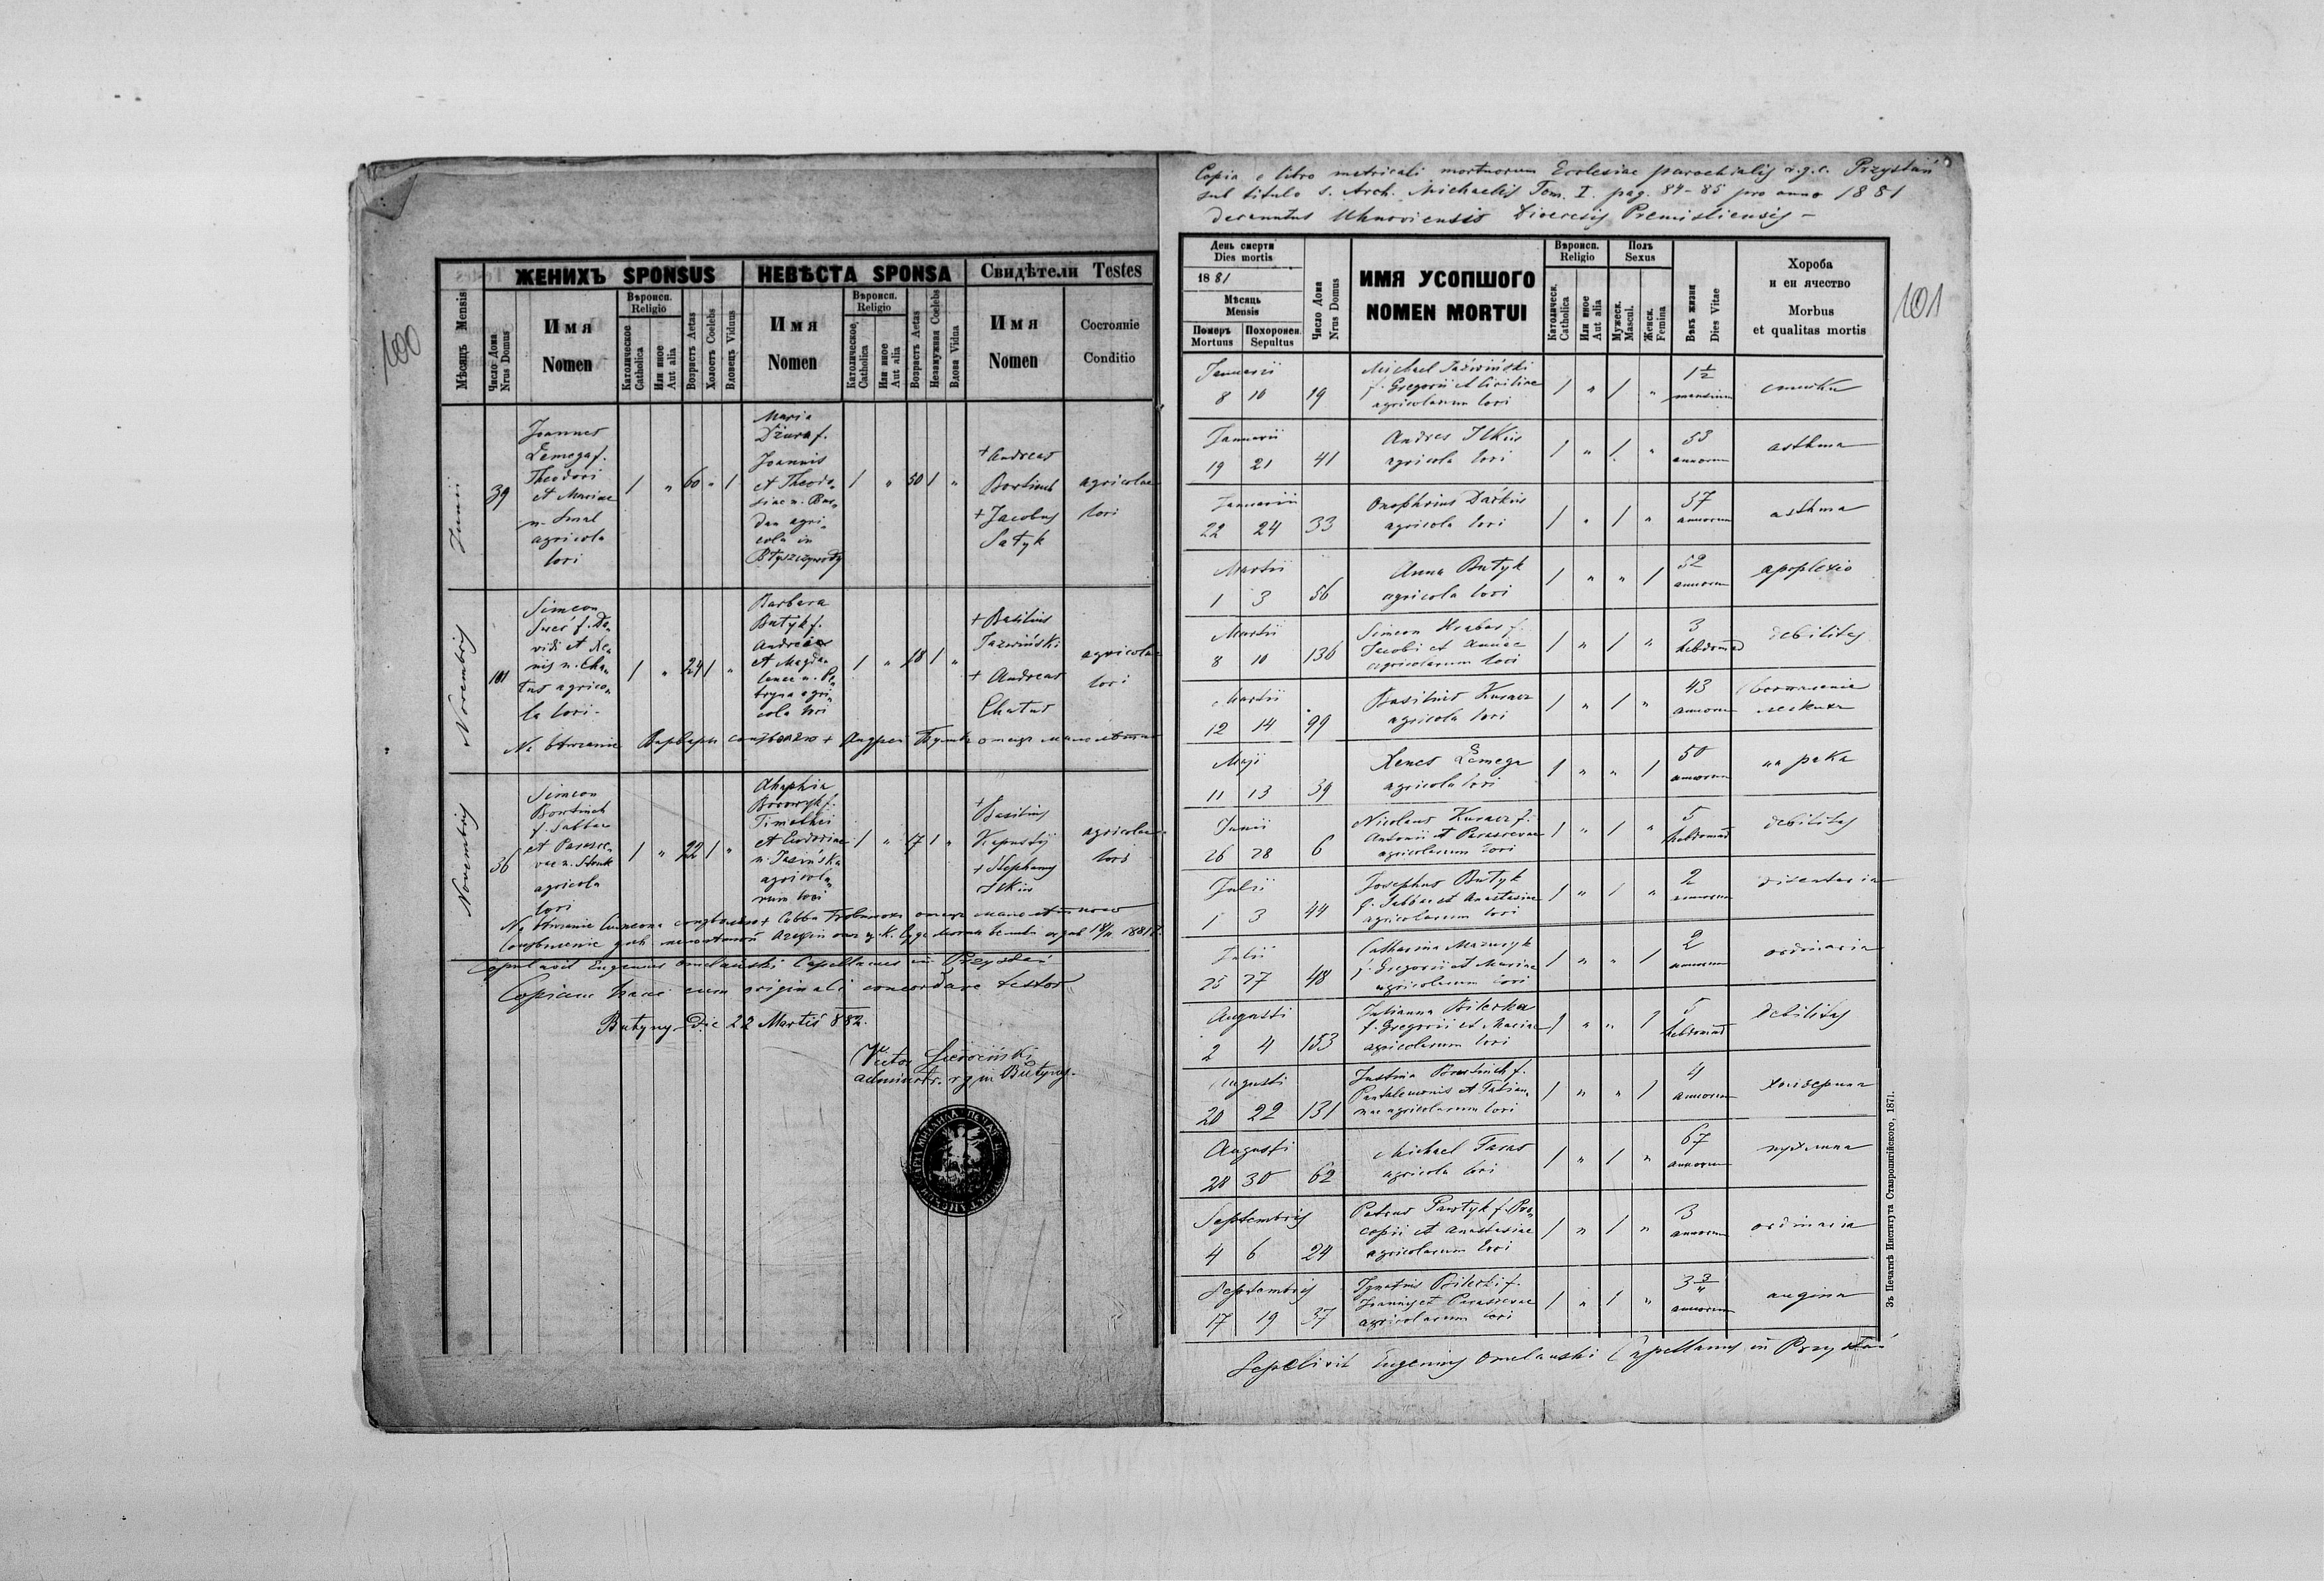 100
ЖЕНИХЪ SPONSUS
НЕВѢСТА SPONSA
Свидѣтели Testes
Мѣсяцъ Mensis
Число Дома
Nrus Domus
Имя
Nomen
Вѣроисп.
Religio
Католическое
Catholica
Или иное
Aut alia
Возрастъ Aetas
Холостъ Coelebs
Вдовецъ Viduus
Имя
Nomen
Вѣроисп.
Religio
Католическое
Catholica
Или иное
Aut alia
Возрастъ Aetas
Незамужная Coelebs
Вдова Vidua
Имя
Nomen
Состояніе
Conditio
Junii
39
Joannes
Lemega f.
Theodori
et Mariae
n. Smal
agricola
lori
1 " 60 " 1
Maria
Dziura f.
Joannis
et Theodo„
siae n. Bas„
dan agri„
cola in
1 " 50 1 "
+ Andreas
Bortinch
+ Jacobus
Satyk
agricolae
lori
Novembris
101
Simeon
f. Da„
vidi et Xe„
nis n. Cha„
tus agrico„
la lori.
1 " 24 1 "
Barbara
Butyk f.
Andreae
et Magda„
lenae n. Pe„
tryna agri„
cola lori
1 " 18 1 "
+ Basilius
Jazwiński
+ Andreas
Chatus
agricolae
lori
На вѣнчаніе Варвары + Андрей Бутыкъ отецъ
Novembris
36
Simeon
Bortinch
f. Sabbae
et Parasce„
vae n.
agricola
lori
1 " 22 1 "
Ahaphia
Borowyk f.
Timothei
et Eudociae
n. Jasińska
agricola„
rum lori
1 " 17 1 "
+ Basilius
Kapustij
+ Stephanus
Ilkiw
agricolae
lori
На вѣнчаніе Симеона + Савва отецъ
Copulavit Eugenius Omelański Capellanus in Przystań
Copiam hanc cum originali concordare testor
Butyny die 22 Martii 882.
Victor
administr. r. g. in Butyny.
Copia e libro metricali mortuorum Ecclesiae parochialis r. g. c. Przystań
sub titulo S. Arch. Michaelis Tom. I. pag. 84-85 pro anno 1881
decanatus Uhnoviensis Dioecesis Premisliensis –
101
День смерти
Dies mortis
1881
Мѣсяць
Mensis
Померъ
Mortuus
Похоронен.
Sepultus
Число Дома
Nrus Domus
ИМЯ УСОПШОГО
NOMEN MORTUI
Вѣроисп.
Religio
Католическ.
Catholica
Или иное
Aut alia
Полъ
Sexus
Мужеск.
Mascul.
Женск.
Femina
Вѣкъ жизни
Dies Vitae
Хороба
и еи ячество
Morbus
et qualitas mortis
Januarii
8 10 19
Michael Jaźwiński
f. Gregorii et Ciriliae
agricolarum lori
1 " 1 "
1 1/2
mensium
Januarii
19 21 41
Andres Ilkiw
agricola lori
1 " 1 "
53
annorum
asthma
Januarii
22 24 33
Onophrius Daćkiw
agricola lori
1 " 1 "
37
annorum
asthma
Martii
1 3 56
Anna Butyk
agricola lori
1 " " 1
52
annorum
apoplexio
Martii
8 10 136
Simeon Hrabar f.
Jacobi et Annae
agricolarum lori
1 " 1 "
3
hebdomad
debilitas
Martii
12 14 99
Basilius Kuracz
agricola lori
1 " 1 "
43
annorum
Maji
11 13 39
Xenes Lemega
agricola lori
1 " " 1
50
annorum
на рака
Junii
26 28 6
Nicolaus Kuracz f.
Antonii et Parascevae
agricolarum lori
1 " 1 "
5
hebdomad
debilitas
Julii
1 3 44
Josephus Butyk
f. Sabbae et Anastasiae
agricolarum lori
1 " 1 "
2
annorum
disenteria
Julii
25 27 48
Catharina Mazuryk
f. Gregorii et Mariae
agricolarum lori
1 " " 1
2
annorum
ordinaria
Augusti
2 4 153
Tatianna Bilecka
f. Gregorii et Mariae
agricolarum lori
1 " " 1
5
hebdomad
debilitas
Augusti
20 22 131
Justina Bortinch f.
Pantalemonis et Tatian„
nae agricolarum lori
1 " " 1
4
annorum
Augusti
28 30 62
Michael Taras
agricola lori
1 " 1 "
67
annorum
Septembris
4 6 24
Petrus Pawtyk f. Pro„
copii et Anastasiae
agricolarum lori
1 " 1 "
3
annorum
ordinaria
Septembris
17 19 37
Ignatius Bilecki f.
Joannis et Parascevae
agricolarum lori
1 " 1 "
annorum
angina
Sepelivit Eugenius Omelański Capellanus in Przystań
Зъ Печатнѣ Института Ставропигійского, 1871.